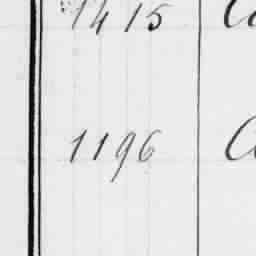 1415
1196